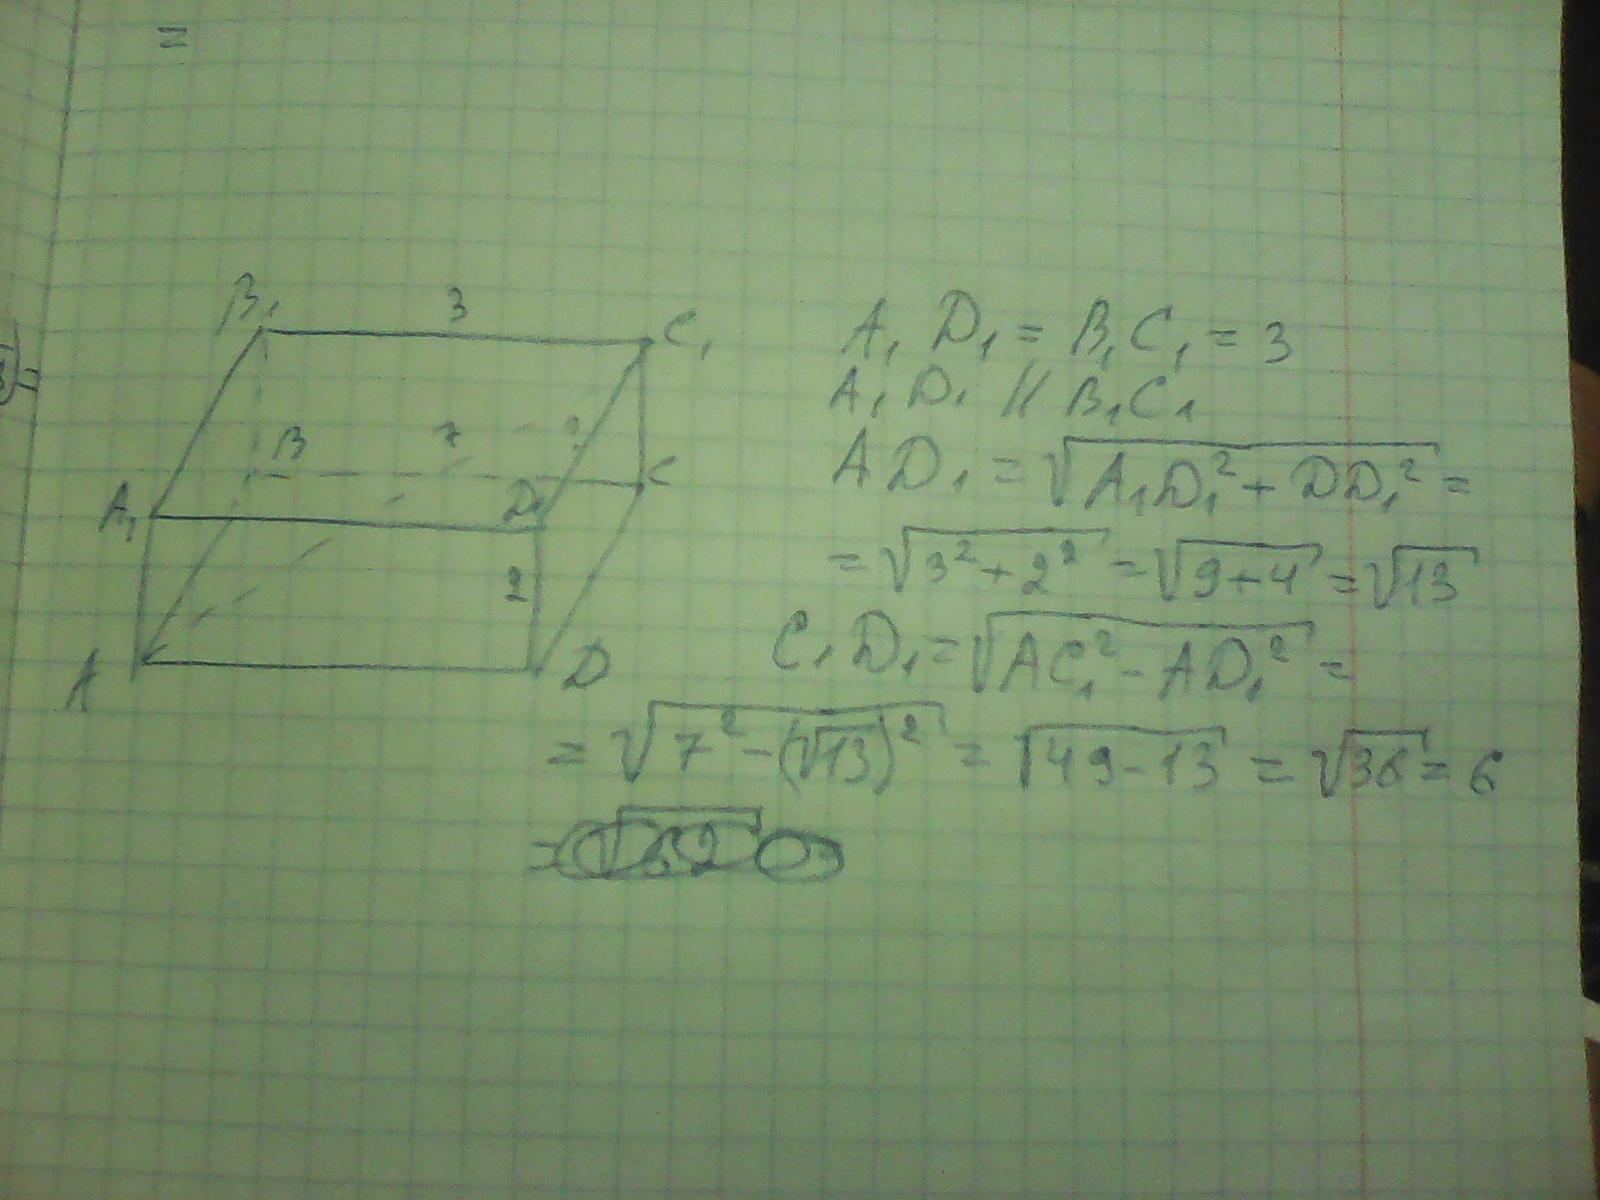 =
B₁ 3 C₁
B 7 ? C
A₁ D₁
2
A D
A₁D₁ = B₁C₁ = 3
A₁D₁ // B₁C₁
AD₁ = √(A₁D₁² + DD₁²) =
= √(3² + 2²) = √(9+4) = √13
C₁D₁ = √(AC₁² - AD₁²) =
= √(7² - (√13)²) = √(49-13) = √36 = 6